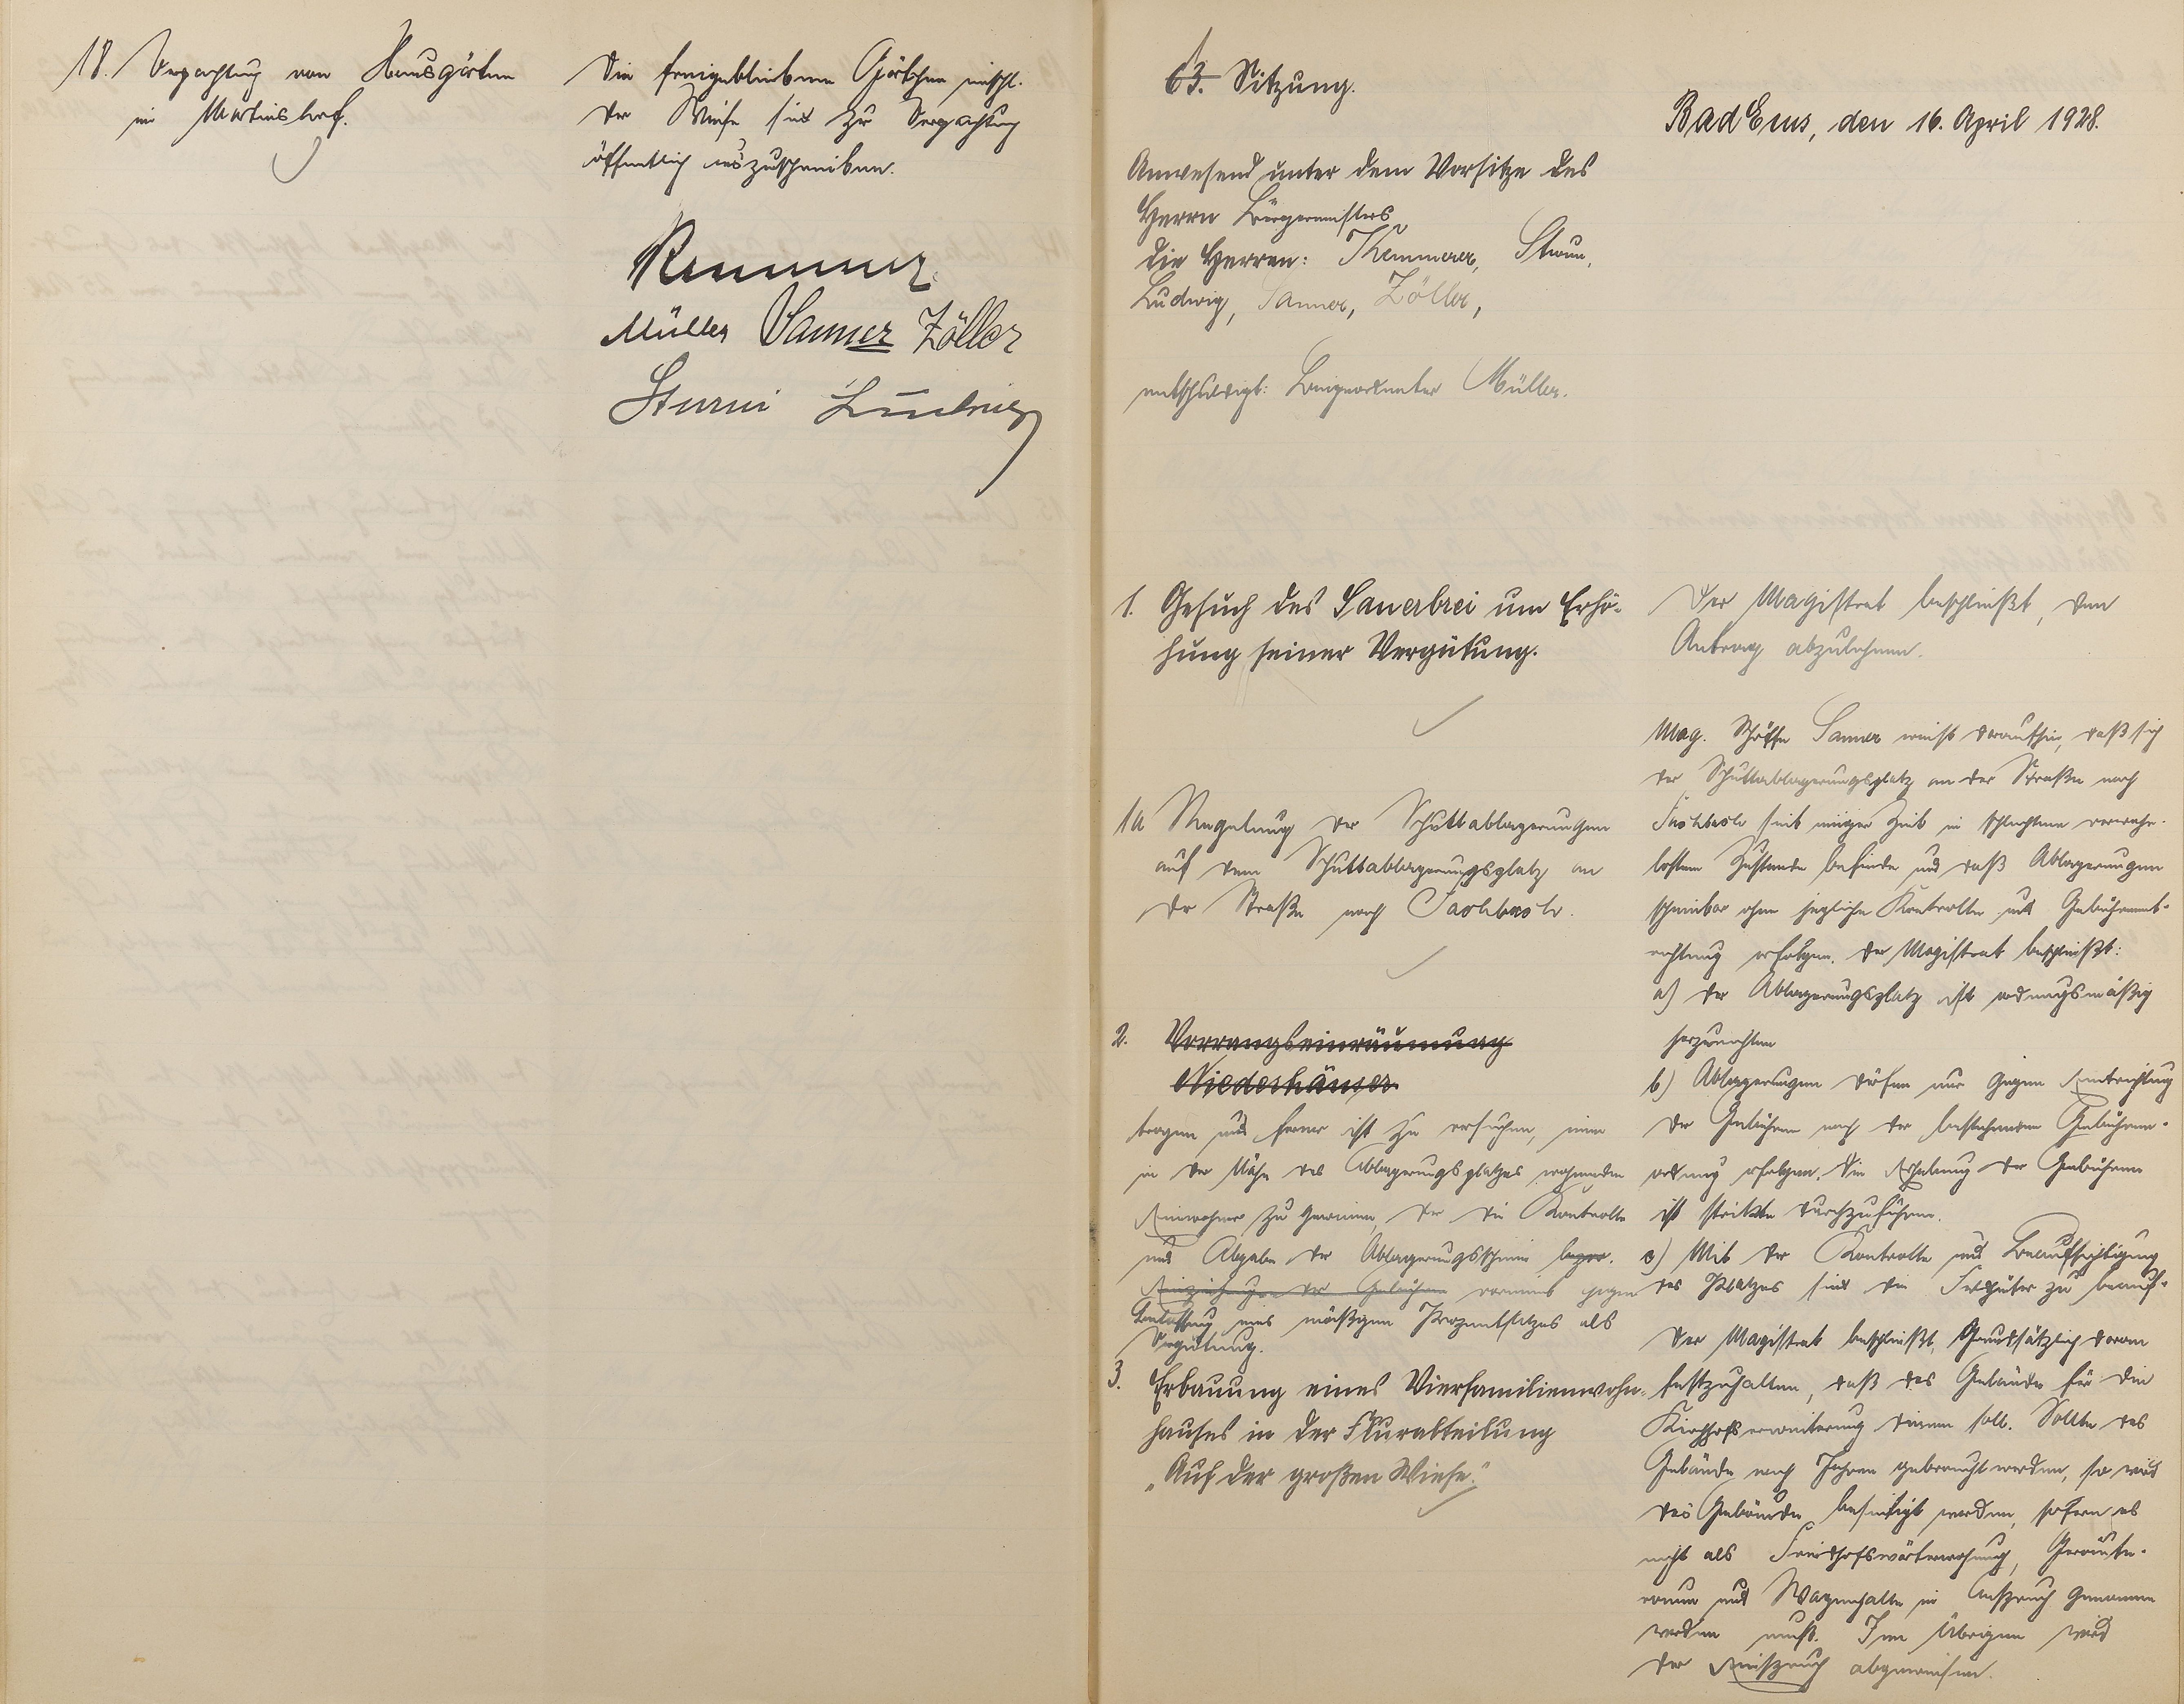 18. Verpachtung von Hausgärten
in Martinshof.
Die freigebliebenen Gärtchen einschl.
der Wiese sind zur Verpachtung
öffentlich auszuschreiben.
Müller Sanner Zöller
Sturm Ludwig
63. Sitzung.
Bad Ems, den 16. April 1928.
Anwesend unter dem Vorsitze des
Herrn Bürgermeisters
die Herren: Themmerer, Sturm,
Ludwig, Sanner, Zöller,
entschuldigt: Beigeordneter Müller.
1. Gesuch des Sauerbrei um Erhö-
hung seiner Vergütung.
Der Magistrat beschließt, den
Antrag abzulehnen.
1a Regelung der Schuttablagerungen
auf dem Schuttablagerungsplatz an
der Straße nach Fachbach.
Mag. Schöffe Sanner weist daraufhin, daß sich
der Schuttablagerungsplatz an der Straße nach
Fachbach seit einiger Zeit in schlechtem verwahr-
losten Zustande befinde und daß Ablagerungen
scheinbar ohne jegliche Kontrolle und Gebührenent-
richtung erfolgen. Der Magistrat beschließt:
a) Der Ablagerungsplatz ist ordnungsmäßig
herzurichten
b) Ablagerungen dürfen nur gegen Entrichtung
der Gebühren nach der bestehenden Gebühren-
ordnung erfolgen. Die Erhebung der Gebühren
ist strikte durchzuführen.
c) Mit der Kontrolle und Beaufsichtigung
des Platzes sind die Feldhüter zu beauf-
2. Vorrangseinräumung
Niederhäuser
tragen und ferner ist zu versuchen, einen
in der Nähe des Ablagerungsplatzes wohnenden
Einwohner zu gewinnen, der die Kontrolle
und Abgabe der Ablagerungsscheine bezw.
Einziehung der Gebühren vornimmt gegen
Belassung eines mäßigen Prozentsatzes als
Vergütung.
3. Erbauung eines Vierfamilienwohn-
hauses in der Flurabteilung
„Auf der großen Wiese."
Der Magistrat beschließt, grundsätzlich daran
festzuhalten, daß das Gelände für die
Kirchhofserweiterung dienen soll. Sollte das
Gelände nach Jahren gebraucht werden, so wird
das Gebäude beseitigt werden, sofern es
nicht als Friedhofswärterwohnung, Geräte-
raum und Wagenhalle in Anspruch genommen
werden muß. Im Übrigen wird
der Einspruch abgewiesen.